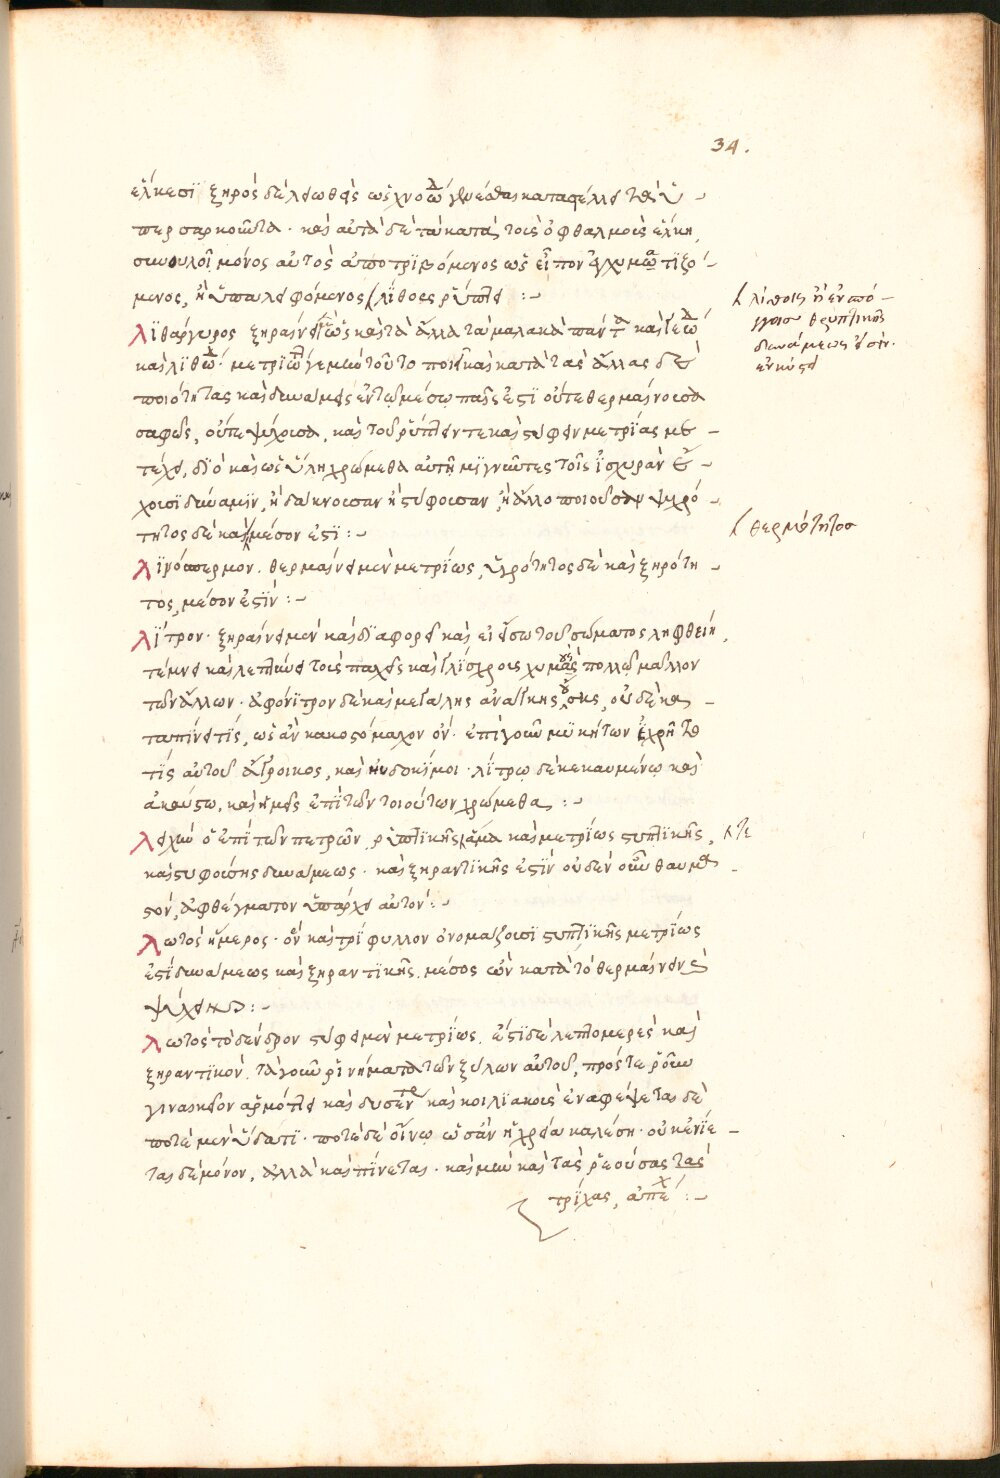 34.
ἕλκεσι ξηρὸς δὲ λειωθεὶς ὡς χνοώδη γενέσθαι καταστέλλει τὰ ὑ-
περσαρκοῦντα. καὶ αὐτὰ δὲ τὰ κατὰ τοῖς ὀφθαλμοῖς ἕλκη,
συνουλοῖ μόνος αὐτὸς ἀποτριβόμενος ὡς εἶπον ἐγχυματιζό-
μενος, ἢ ὑπαλειφόμενος λίθοις ῥύπτει :-
Λιθάργυρος ξηραίνει ὡς καὶ τὰ ἄλλα τὰ μαλακὰ πάντα καὶ γεώδη
καὶ λιθώδη. μετρίως γε μὴν τοῦτο ποιεῖ καὶ κατὰ τὰς ἄλλας δὲ
ποιότητας καὶ δυνάμεις ἐν τῷ μέσῳ πως ἐστὶ οὔτε θερμαίνουσα
σαφῶς, οὔτε ψύχουσα, καὶ τοῦ ῥύπτειν τε καὶ στύφειν μετρίας με-
τέχει, διὸ καὶ ὡς ὕλῃ χρώμεθα αὐτῇ μιγνῶντες τοῖς ἰσχυρὰν ἔ-
χουσι δύναμιν, ἢ δάκνουσαν ἢ στύφουσαν, ἢ ἄλλο ποιοῦσαν ψυχρό-
τητος δὲ καὶ μέσον ἐστὶ :-
Λινόσπερμον. θερμαίνει μὲν μετρίως, ὑγρότητος δὲ καὶ ξηρότη-
τος, μέσον ἐστίν :-
Λίτρον. ξηραίνει μὲν καὶ διαφορεῖ καὶ εἰ εἴσω τοῦ σώματος ληφθείη,
τέμνει καὶ λεπτύνει τοὺς παχεῖς καὶ γλίσχρους χυμοὺς πολλῷ μᾶλλον
τῶν ἄλλων. ἀφρόνιτρον δὲ καὶ μεγάλης ἀνάγκης οὔσης, οὐδὲ κα-
ταπίνει τίς, ὡς ἂν κακοστόμαχον ὄν. ἐπὶ γοῦν μυκήτων ἐχρῆτο
τίς αὐτοῦ ἄγροικος, καὶ ηὐδοκίμοι. λίτρῳ δὲ κεκαυμένῳ καὶ
ἀκαύστῳ, καὶ ἡμεῖς ἐπὶ τῶν τοιούτων χρώμεθα :-
Λειχὴν ὁ ἐπὶ τῶν πετρῶν, ῥυπτικῆς ἅμα καὶ μετρίως στυπτικῆς,
καὶ στυφούσης δυνάμεως. καὶ ξηραντικῆς ἐστίν οὐδὲν οὖν θαυμα-
στόν, ἀφθέγματον ὑπάρχει αὐτόν :-
Λωτὸς ἥμερος. ὃν καὶ τρίφυλλον ὀνομάζουσι στυπτικῆς μετρίως
ἐστὶ δυνάμεως καὶ ξηραντικῆς. μέσος ὢν κατὰ τὸ θερμαίνειν καὶ
ψύχειν :-
Λωτὸς τὸ δένδρον στύφει μὲν μετρίως, ἔστι δὲ λεπτομερὲς καὶ
ξηραντικόν. τὰ γοῦν ῥινήματα τῶν ξύλων αὐτοῦ, πρός τε ῥοῦν
γυναικεῖον ἁρμόττει καὶ δυσεντε καὶ κοιλιακοῖς ἐναφέψεται δὲ
ποτὲ μὲν ὕδατι. ποτὲ δὲ οἴνῳ ὡς ἂν ἡ χρεία καλέσῃ. οὐκ ἐνίε-
ται δὲ μόνον, ἀλλὰ καὶ πίνεται. καὶ μὴν καὶ τὰς ῥεούσας τὰς
τρίχας, ἀπέχ :-
δυνάμεως
θερμότητος